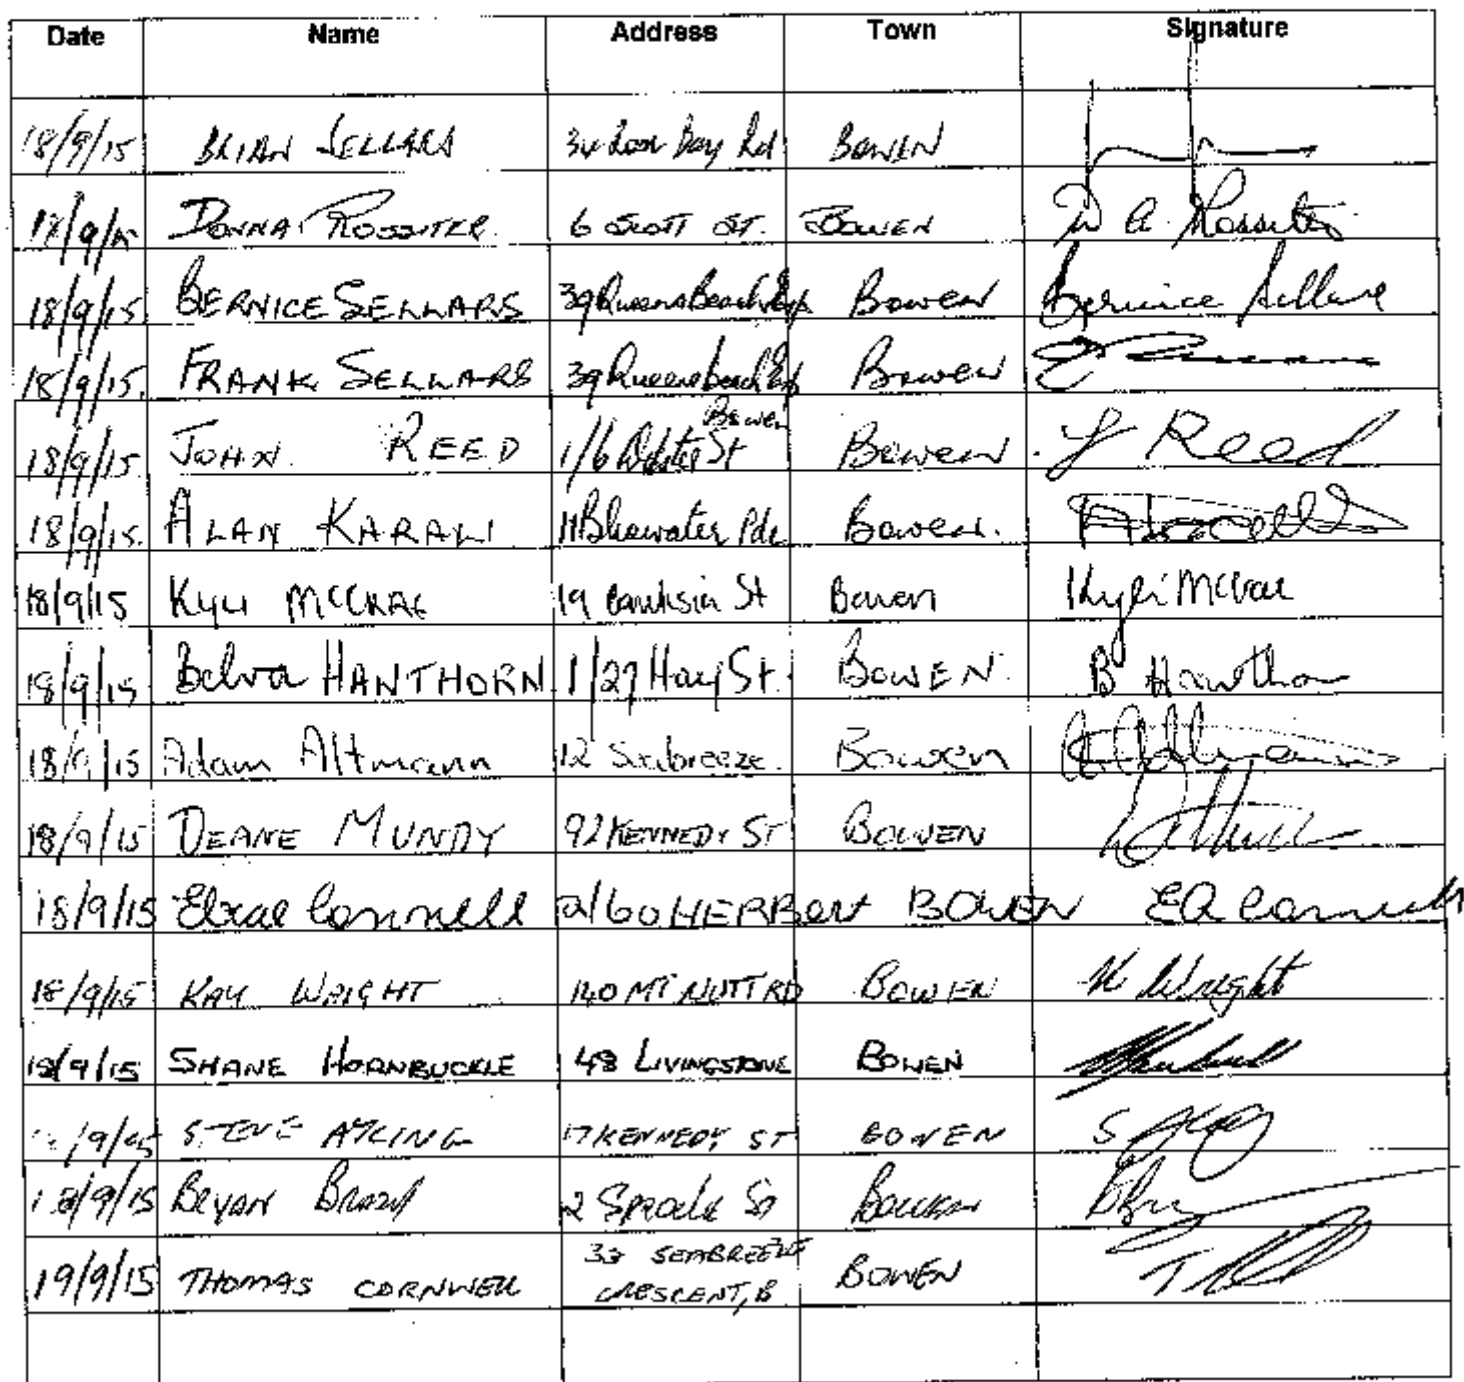 Date Name Address Town Signature
18/9/15 BRIAN SELLARS 34 Rose Bay Rd BOWEN
18/9/15 DONNA ROSSITER 6 SCOTT ST. BOWEN D A Rossiter
18/9/15 BERNICE SELLARS 39 Queens Beach Esp Bowen Bernice Sellars
18/9/15. FRANK SELLARS 39 Queens beach Esp Bowen
Bowen
18/9/15 JOHN REED 1/6 St Bowen. J Reed
18/9/15 ALAN KARALI 11 Bluewater Pde Bowen.
18/9/15 Kyli McCrae 19 Banksia St Bowen Kyli McCrae
18/9/15 Belva HANTHORN 1/27 Hay St. BOWEN B Hawthorn
18/9/15 Adam Altmann 12 Seabreeze. Bowen A Altmann
18/9/15 DEANE MUNDY 92 KENNEDY ST BOWEN
18/9/15 Connell 2/60 HERBert BOWEN EA Connell
18/9/15 KAY WRIGHT 140 MT NUTT RD BOWEN K Wright
18/9/15 SHANE HORNBUCKLE 48 LIVINGSTONE BOWEN
/9/15 STEVE AYLING 17 KENNEDY ST BOWEN
18/9/15 BRYAN 2 St Bowen
33 SEABREEZE
19/9/15 THOMAS CORNWELL CRESCENT, B BOWEN